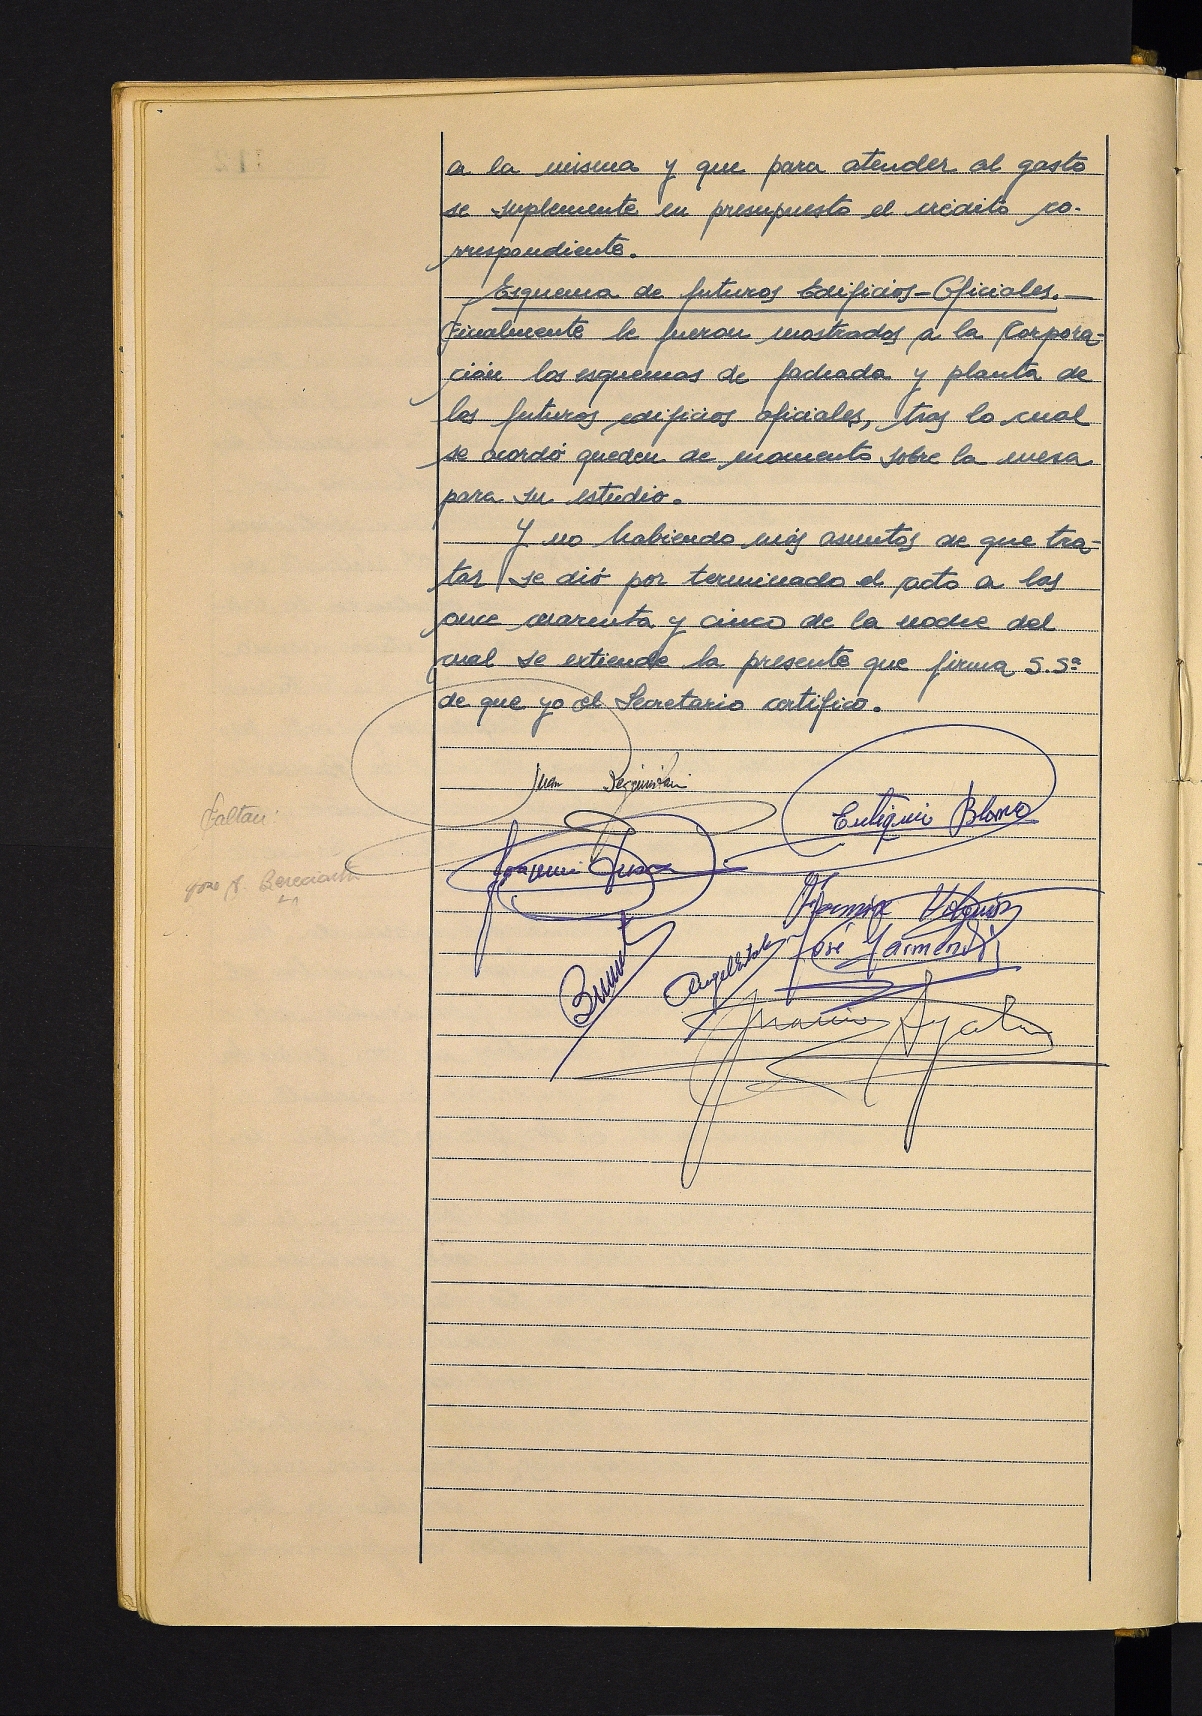 a la misma y que para atender al gasto
se suplemente en presupuesto el crédito co-
rrespondiente.
Esquema de futuros Edificios-Oficiales.—
Finalmente le fueron mostrados a la Corpora-
ción los esquemas de fachada y planta de
los futuros edificios oficiales, tras lo cual
se acordó queden de momento sobre la mesa
para su estudio.
Y no habiendo más asuntos de que tra-
tar se dió por terminado el acto a las
once cuarenta y cinco de la noche del
cual se extiende la presente que firma S.Sª
de que yo el Secretario certifico.
Juan
Eutiquio Blanco
Faltan:
José
José Garmendi
Ayala